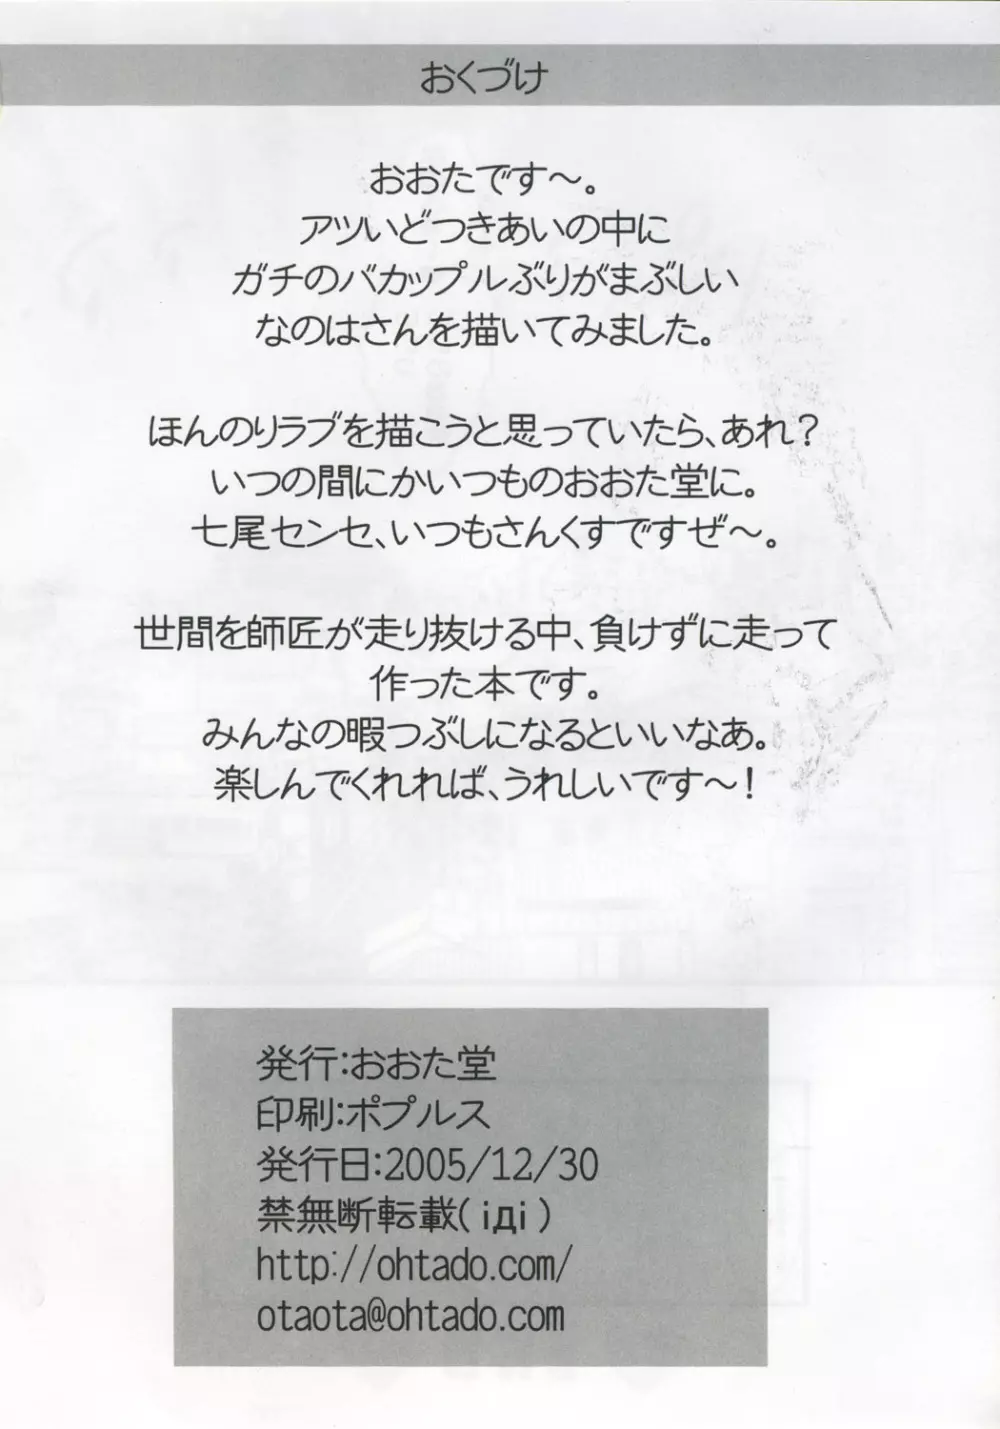 おくづけ
おおたです～。
アツいどつきあいの中に
ガチのバカップルぶりがまぶしい
なのはさんを描いてみました。
ほんのりラブを描こうと思っていたら、あれ？
いつの間にかいつものおおた堂に。
七尾センセ、いつもさんくすですぜ～。
世間を師匠が走り抜ける中、負けずに走って
作った本です。
みんなの暇つぶしになるといいなあ。
楽しんでくれれば、うれしいです～！
発行：おおた堂
印刷：ポプルス
発行日：2005/12/30
禁無断転載( iдi )
http://ohtado.com/
otaota@ohtado.com